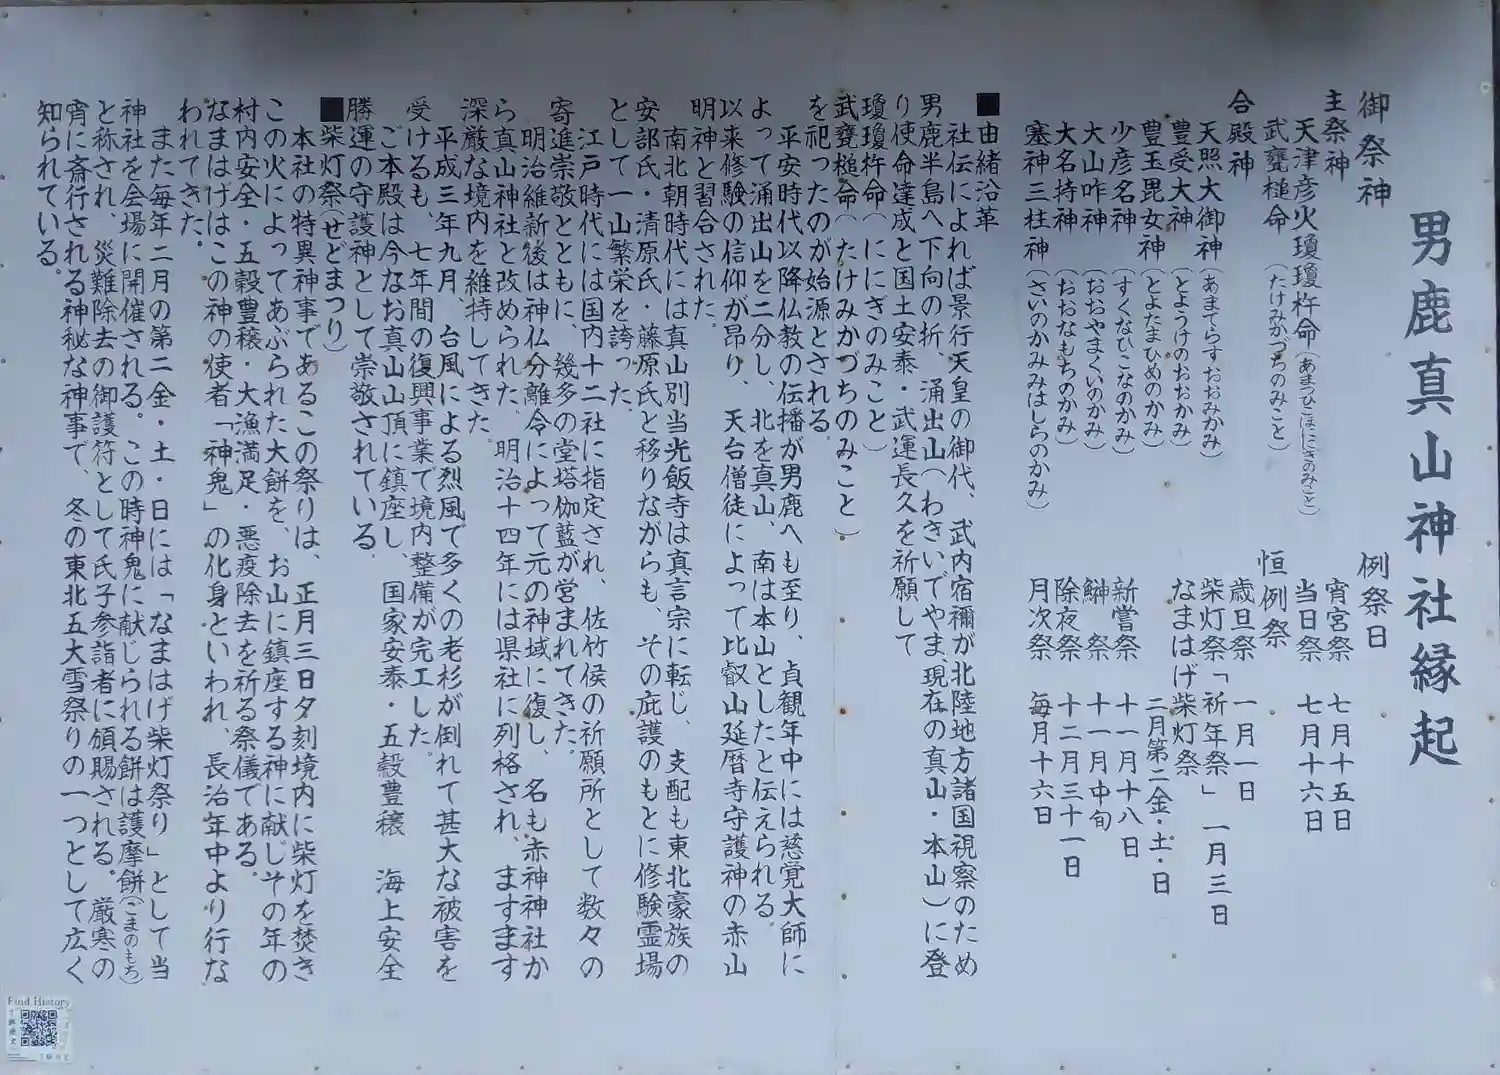 男鹿真山神社縁起
御祭神
主祭神
天津彦火瓊瓊杵命（あまつひこほににぎのみこと）
武甕槌命（たけみかづちのみこと）
合殿神
天照大御神（あまてらすおおみかみ）
豊受大神（とようけのおおかみ）
豊玉毘女神（とよたまひめのかみ）
少彦名神（すくなひこなのかみ）
大山咋神（おおやまくいのかみ）
大名持神（おおなもちのかみ）
塞神三柱神（さいのかみみはしらのかみ）
例祭日
宵宮祭 七月十五日
当日祭 七月十六日
恒例祭
歳旦祭 一月一日
柴灯祭「祈年祭」 一月三日
なまはげ柴灯祭
二月第二金・土・日
新嘗祭 十一月十八日
鰰祭 十一月中旬
除夜祭 十二月三十一日
月次祭 毎月十六日
■由緒沿革
社伝によれば景行天皇の御代、武内宿禰が北陸地方諸国視察のため
男鹿半島へ下向の折、涌出山（わきいでやま、現在の真山・本山）に登
り使命達成と国土安泰・武運長久を祈願して
瓊瓊杵命（ににぎのみこと）
武甕槌命（たけみかづちのみこと）
を祀ったのが始源とされる。
平安時代以降仏教の伝播が男鹿へも至り、貞観年中には慈覚大師に
よって涌出山を二分し、北を真山、南は本山としたと伝えられる。
以来修験の信仰が昂り、天台僧徒によって比叡山延暦寺守護神の赤山
明神と習合された。
南北朝時代には真山別当光飯寺は真言宗に転じ、支配も東北豪族の
安部氏・清原氏・藤原氏と移りながらも、その庇護のもとに修験霊場
として一山繁栄を誇った。
江戸時代には国内十二社に指定され、佐竹侯の祈願所として数々の
寄進崇敬とともに、幾多の堂塔伽藍が営まれてきた。
明治維新後は神仏分離令によって元の神域に復し、名も赤神神社か
ら真山神社と改められた。明治十四年には県社に列格され、ますます
深厳な境内を維持してきた。
平成三年九月、台風による烈風で多くの老杉が倒れて甚大な被害を
受けるも、七年間の復興事業で境内整備が完工した。
ご本殿は今なお真山山頂に鎮座し、国家安泰・五穀豊穣 海上安全
勝運の守護神として崇敬されている。
■柴灯祭（せどまつり）
本社の特異神事であるこの祭りは、正月三日夕刻境内に柴灯を焚き
この火によってあぶられた大餅を、お山に鎮座する神に献じその年の
村内安全・五穀豊穣・大漁満足・悪疫除去を祈る祭儀である。
なまはげはこの神の使者「神鬼」の化身といわれ、長治年中より行な
われてきた。
また毎年二月の第二金・土・日には「なまはげ柴灯祭り」として当
神社を会場に開催される。この時神鬼に献じられる餅は護摩餅（ごまのもち）
と称され、災難除去の御護符として氏子参詣者に頒賜される。厳寒の
宵に斎行される神秘な神事で、冬の東北五大雪祭りの一つとして広く
知られている。
Find History